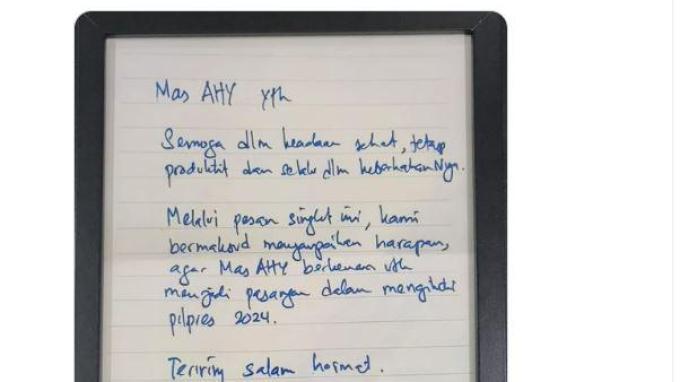 Mas AHY yth
Semoga dlm keadaan sehat, tetap
produktif dan selalu dlm keberkahanNya.
Melalui pesan singkat ini, kami
bermaksud menyampaikan harapan,
agar Mas AHY berkenan utk
menjadi pasangan dalam mengikuti
pilpres 2024.
Teriring salam hormat.